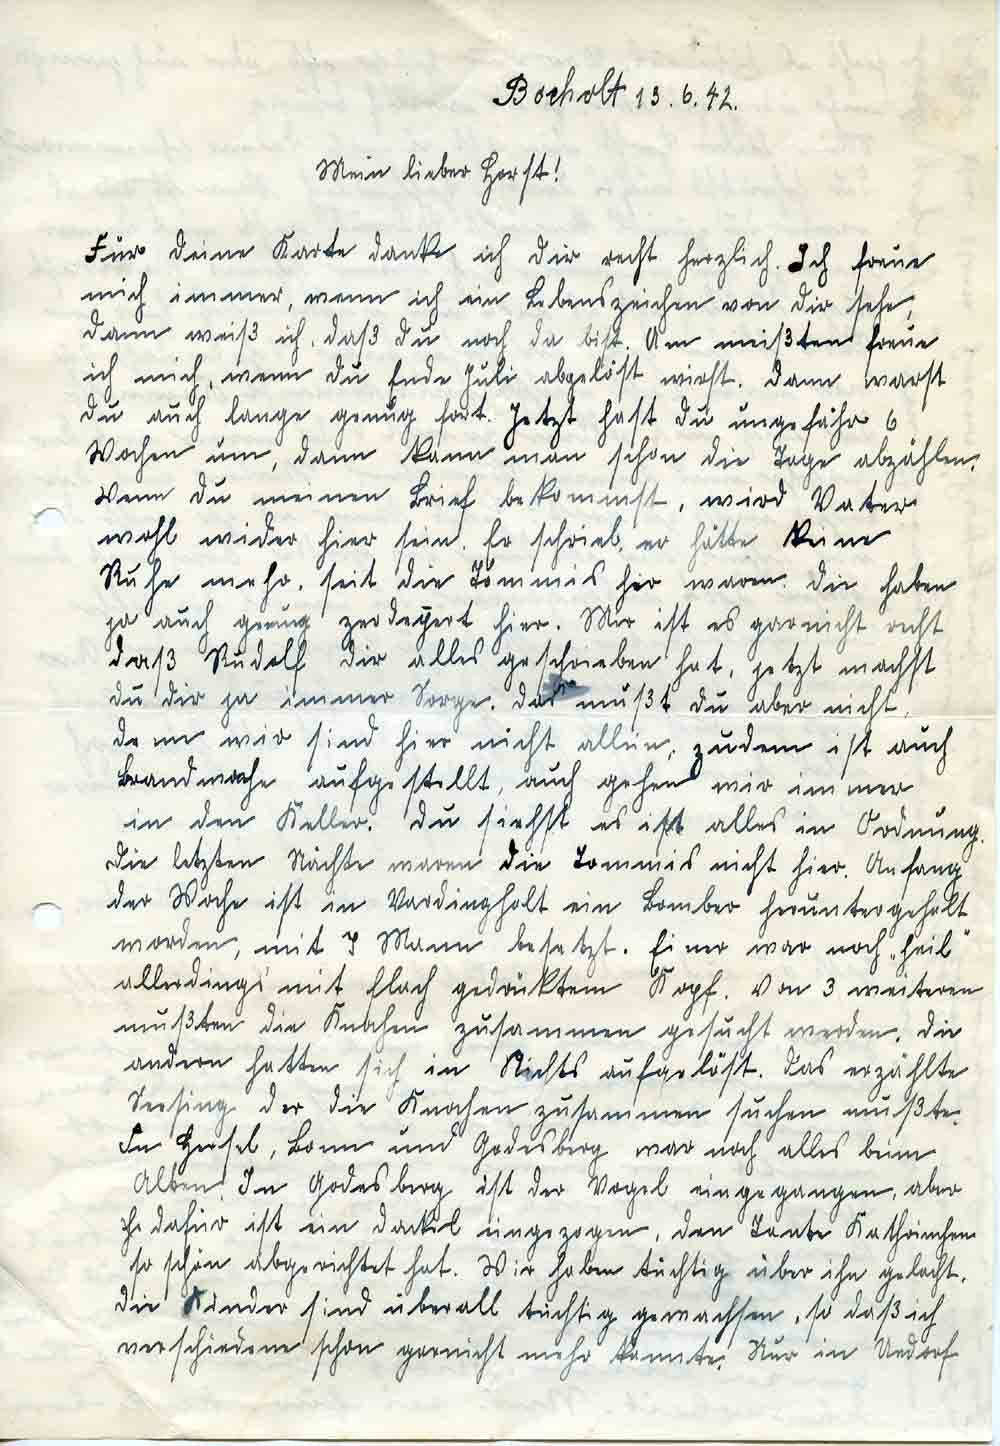 Bocholt 13.6.42.
Mein lieber Horst!
Für deine Karte danke ich dir recht herzlich. Ich freue
mich immer, wenn ich ein Lebenszeichen von dir sehe,
dann weiß ich, daß du noch da bist. Am meißten freue
ich mich, wenn du Ende Juli abgelöst wirst. Dann warst
du auch lange genug fort. Jetzt hast du ungefähr 6
Wochen um, dann kann man schon die Tage abzählen.
Wenn du meinen Brief bekommst, wird Vater
wohl wider hier sein. Er schrieb, er hätte keine
Ruhe mehr, seit die Tommis hir waren. Die haben
ja auch genug zerdeppert hier. Mir ist es garnicht recht
daß Rudolf dir alles geschrieben hat, jetzt machst
du dir ja immer Sorge. Das mußt du aber nicht,
denn wir sind hier nicht allein, zudem ist auch
Brandwache aufgestellt, auch gehen wir immer
in den Keller. Du siehst es ist alles in Ordnung.
Die letzten Nächte waren die Tommis nicht hier. Anfang
der Woche ist in Vardingholt ein Bomber heruntergeholt
worden, mit 7 Mann besetzt. Einer war noch „heil“
allerdings mit flach gedrüktem Kopf. Von 3 weiteren
mußten die Knochen zusammen gesucht werden. Die
andern hatten sich in Nichts aufgelöst. Das erzählte
der die Knochen zusammen suchen mußte.
In Hersel, Bonn und Godesberg war noch alles beim
Alten. In Godesberg ist der Vogel eingegangen, aber
dafür ist ein Dackel eingezogen, den Tante Kathrinchen
so schön abgerichtet hat. Wir haben tüchtig über ihn gelacht.
Die Kinder sind überall tüchtig gewachsen, so daß ich
verschiedene schon garnicht mehr kannte. Nur in Uedorf